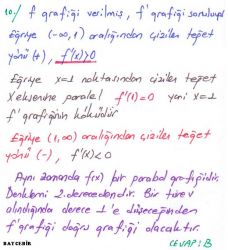 10-/ f grafiği verilmiş, f' grafiği soruluyor
Eğriye (-∞,1) aralığından çizilen teğet
yönü (+), f'(x)>0
Eğriye x=1 noktasından çizilen teğet
X eksenine paralel f'(1)=0 yani x=1
f' grafiğinin köküdür
Eğriye (1,∞) aralığından çizilen teğet
yönü (-), f'(x)<0
Aynı zamanda f(x) bir parabol grafiğidir.
Denklemi 2.derecedendir. Bir türev
alındığında derece 1'e düşeceğinden
f' grafiği doğru grafiği olacaktır.
CEVAP: B
BAYCEBİR